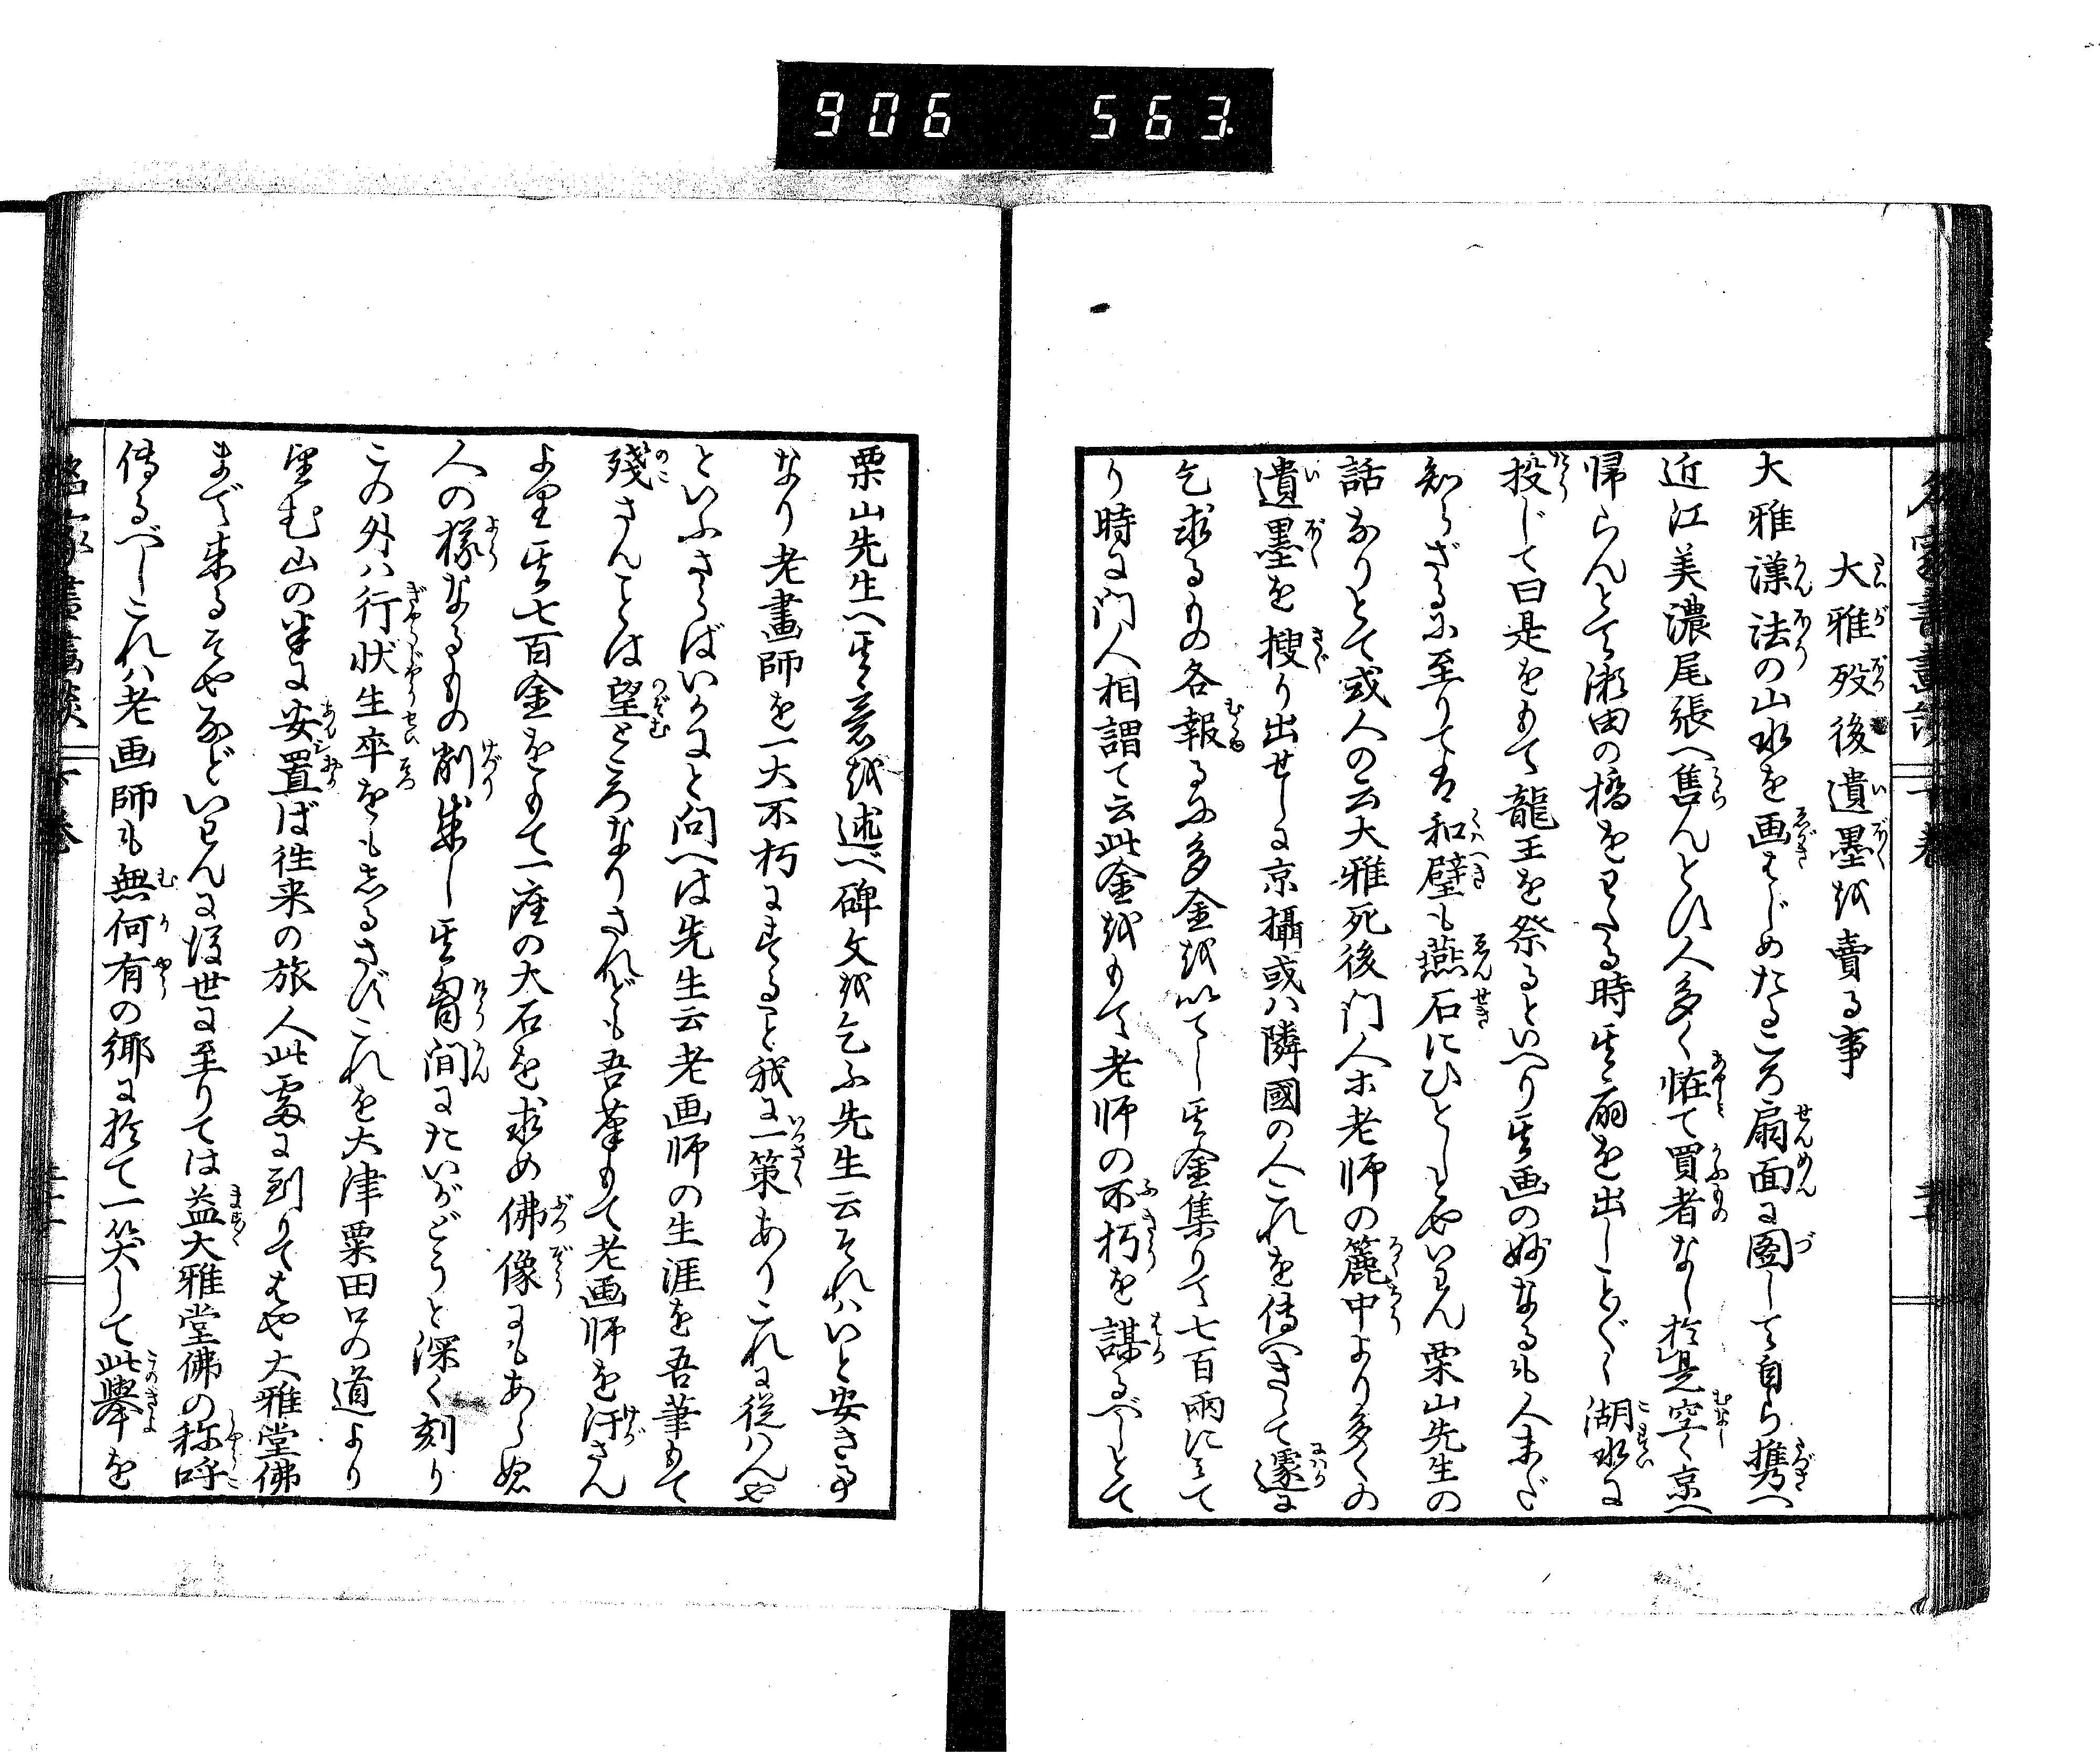 906 563
大雅歿後遺墨越賣る事
大雅漢法の山水を画はじめたるころ扇面に図して自ら携へ
近江美濃尾張へ售んとひ人多く恠て買者なし於是空く京へ
帰らんとて瀬田の橋をわたる時其扇を出しことごとく湖水に
投じて曰是をもて龍王を祭るといへり其画の妙なるも人未だ
知らざるに至りては和璧も燕石にひとしとやいわん栗山先生の
話なりとて或人の云大雅死後門人ホ老師の簏中より多くの
遺墨を搜り出せしに京攝或ハ隣國の人これを傳へきゝて遽に
乞求るもの各報るに多金越以てし其金集りて七百兩にミて
り時に門人相謂て云此金越もて老師の不朽を謀るべしとて
栗山先生へ其意越述べ碑文越乞ふ先生云それハいと安き事
なり老畫師を一大不朽にすること我に一策ありこれに従ハんや
といふさらばいかにと問へは先生云老画師の生涯を吾筆もて
殘さんことは望ところなりされども吾筆もて老画師を汚さん
より其七百金をもて一座の大石を求め佛像にもあらぬ
人の樣なるもの削成し其胷間にたいがどうと深く刻り
この外ハ行状生卒をもしるさずこれを大津粟田口の道より
望む山の半に安置ば徃来の旅人此處に到りてはや大雅堂佛
まで来るそやなどいわんに後世に至りては益大雅堂佛の称呼
傳るべしこれハ老画師も無何有の郷に於て一笑して此擧を